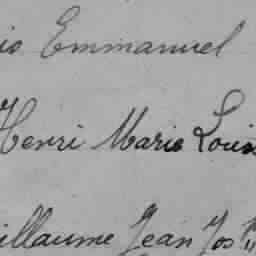 is Emmanuel
Henri Marie Louis
illaume Jean Jos